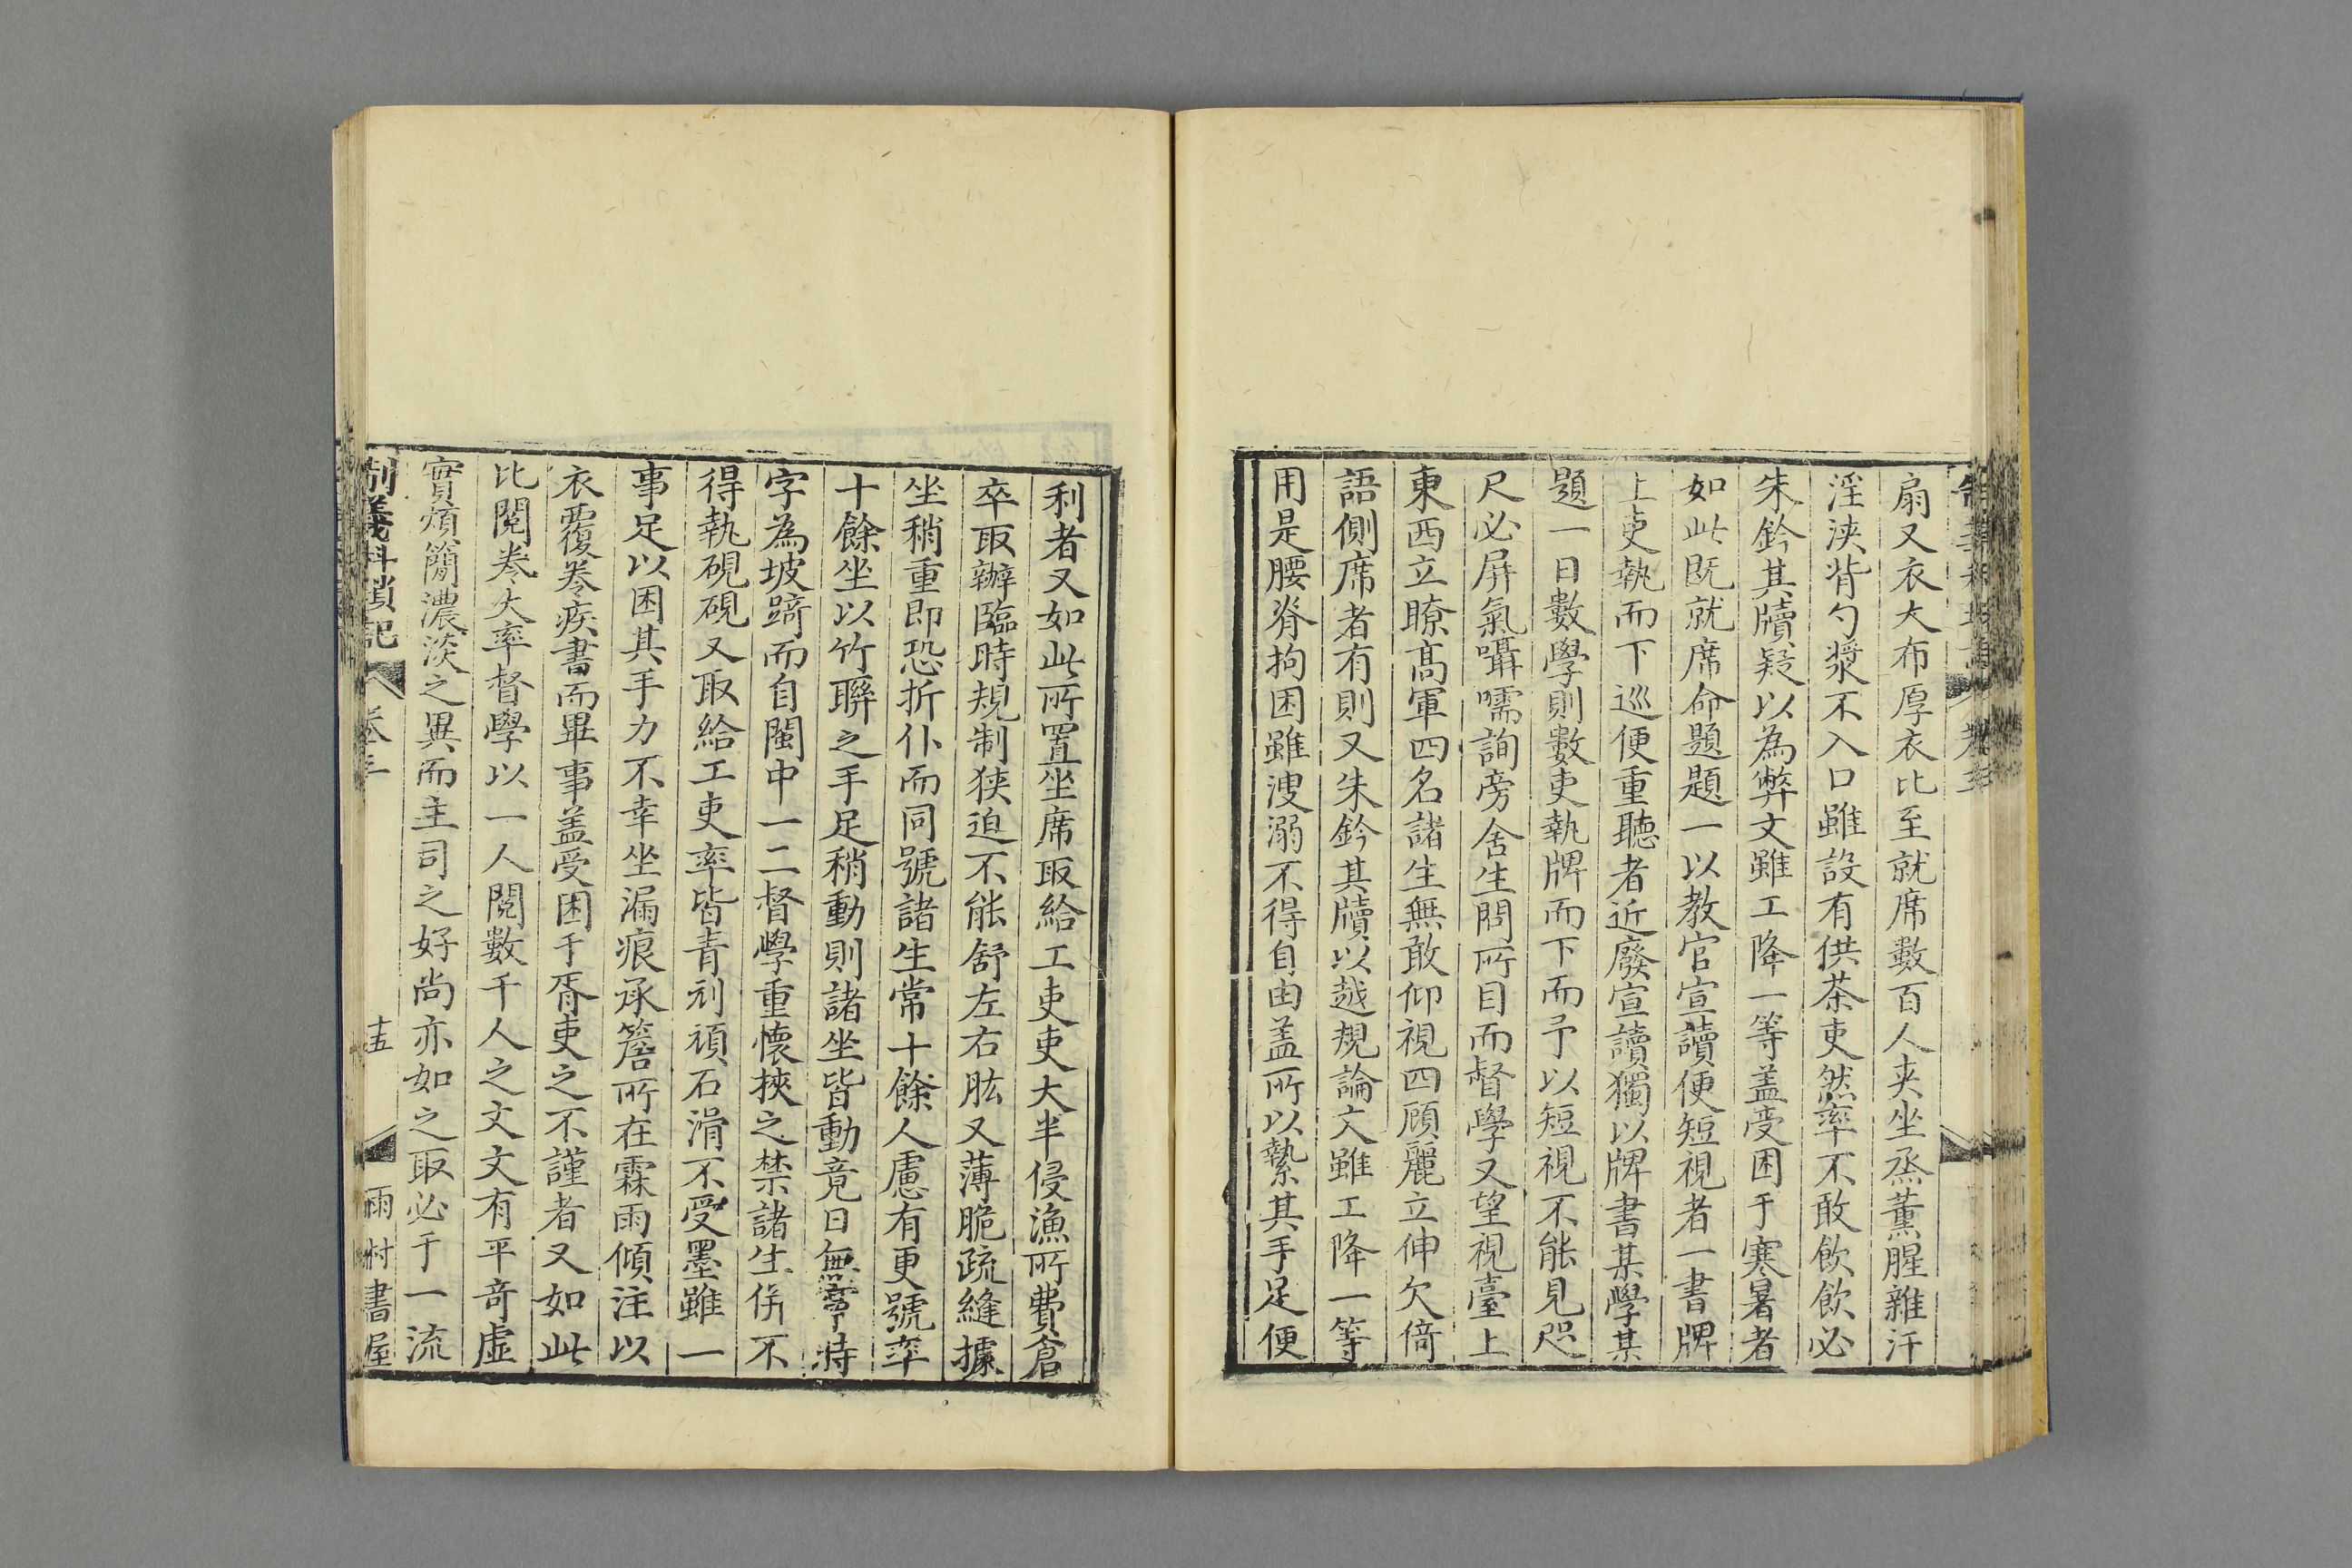 扇又衣大布厚衣比至就席數百人夾坐烝薰腥雜汗
淫浹背勺漿不入口雖設有供茶吏然率不敢飲飲必
朱鈐其牘疑以為弊文雖工降一等盖受困于寒暑者
如此既就席命題題一以教官宣讀便短視者一書牌
上吏執而下巡便重聽者近廢宣讀獨以牌書某學某
題一日數學則數吏執牌而下而予以短視不能見咫
尺必屏氣囁嚅詢旁舍生問所目而督學又望視臺上
東西立瞭高軍四名諸生無敢仰視四顧麗立伸欠倚
語側席者有則又朱鈐其牘以越規論文雖工降一等
用是腰脊拘困雖溲溺不得自由盖所以縶其手足便
利者又如此所置坐席取給工吏吏大半侵漁所費倉
卒取辦臨時規制狹迫不能舒左右肱又薄脆疏縫據
坐稍重即恐折仆而同號諸生常十餘人慮有更號率
十餘坐以竹聯之手足稍動則諸坐皆動竟日無寧時
字為坡踦而自閩中一二督學重懷挾之禁諸生併不
得執硯硯又取給工吏率皆青刓頑石滑不受墨雖一
事足以困其手力不幸坐漏痕承簷所在霖雨傾注以
衣覆卷疾書而畢事盖受困于胥吏之不謹者又如此
比閱卷大率督學以一人閱數千人之文文有平奇虛
實煩簡濃淡之異而主司之好尚亦如之取必于一流
制義科瑣記 卷三 十五 雨村書屋